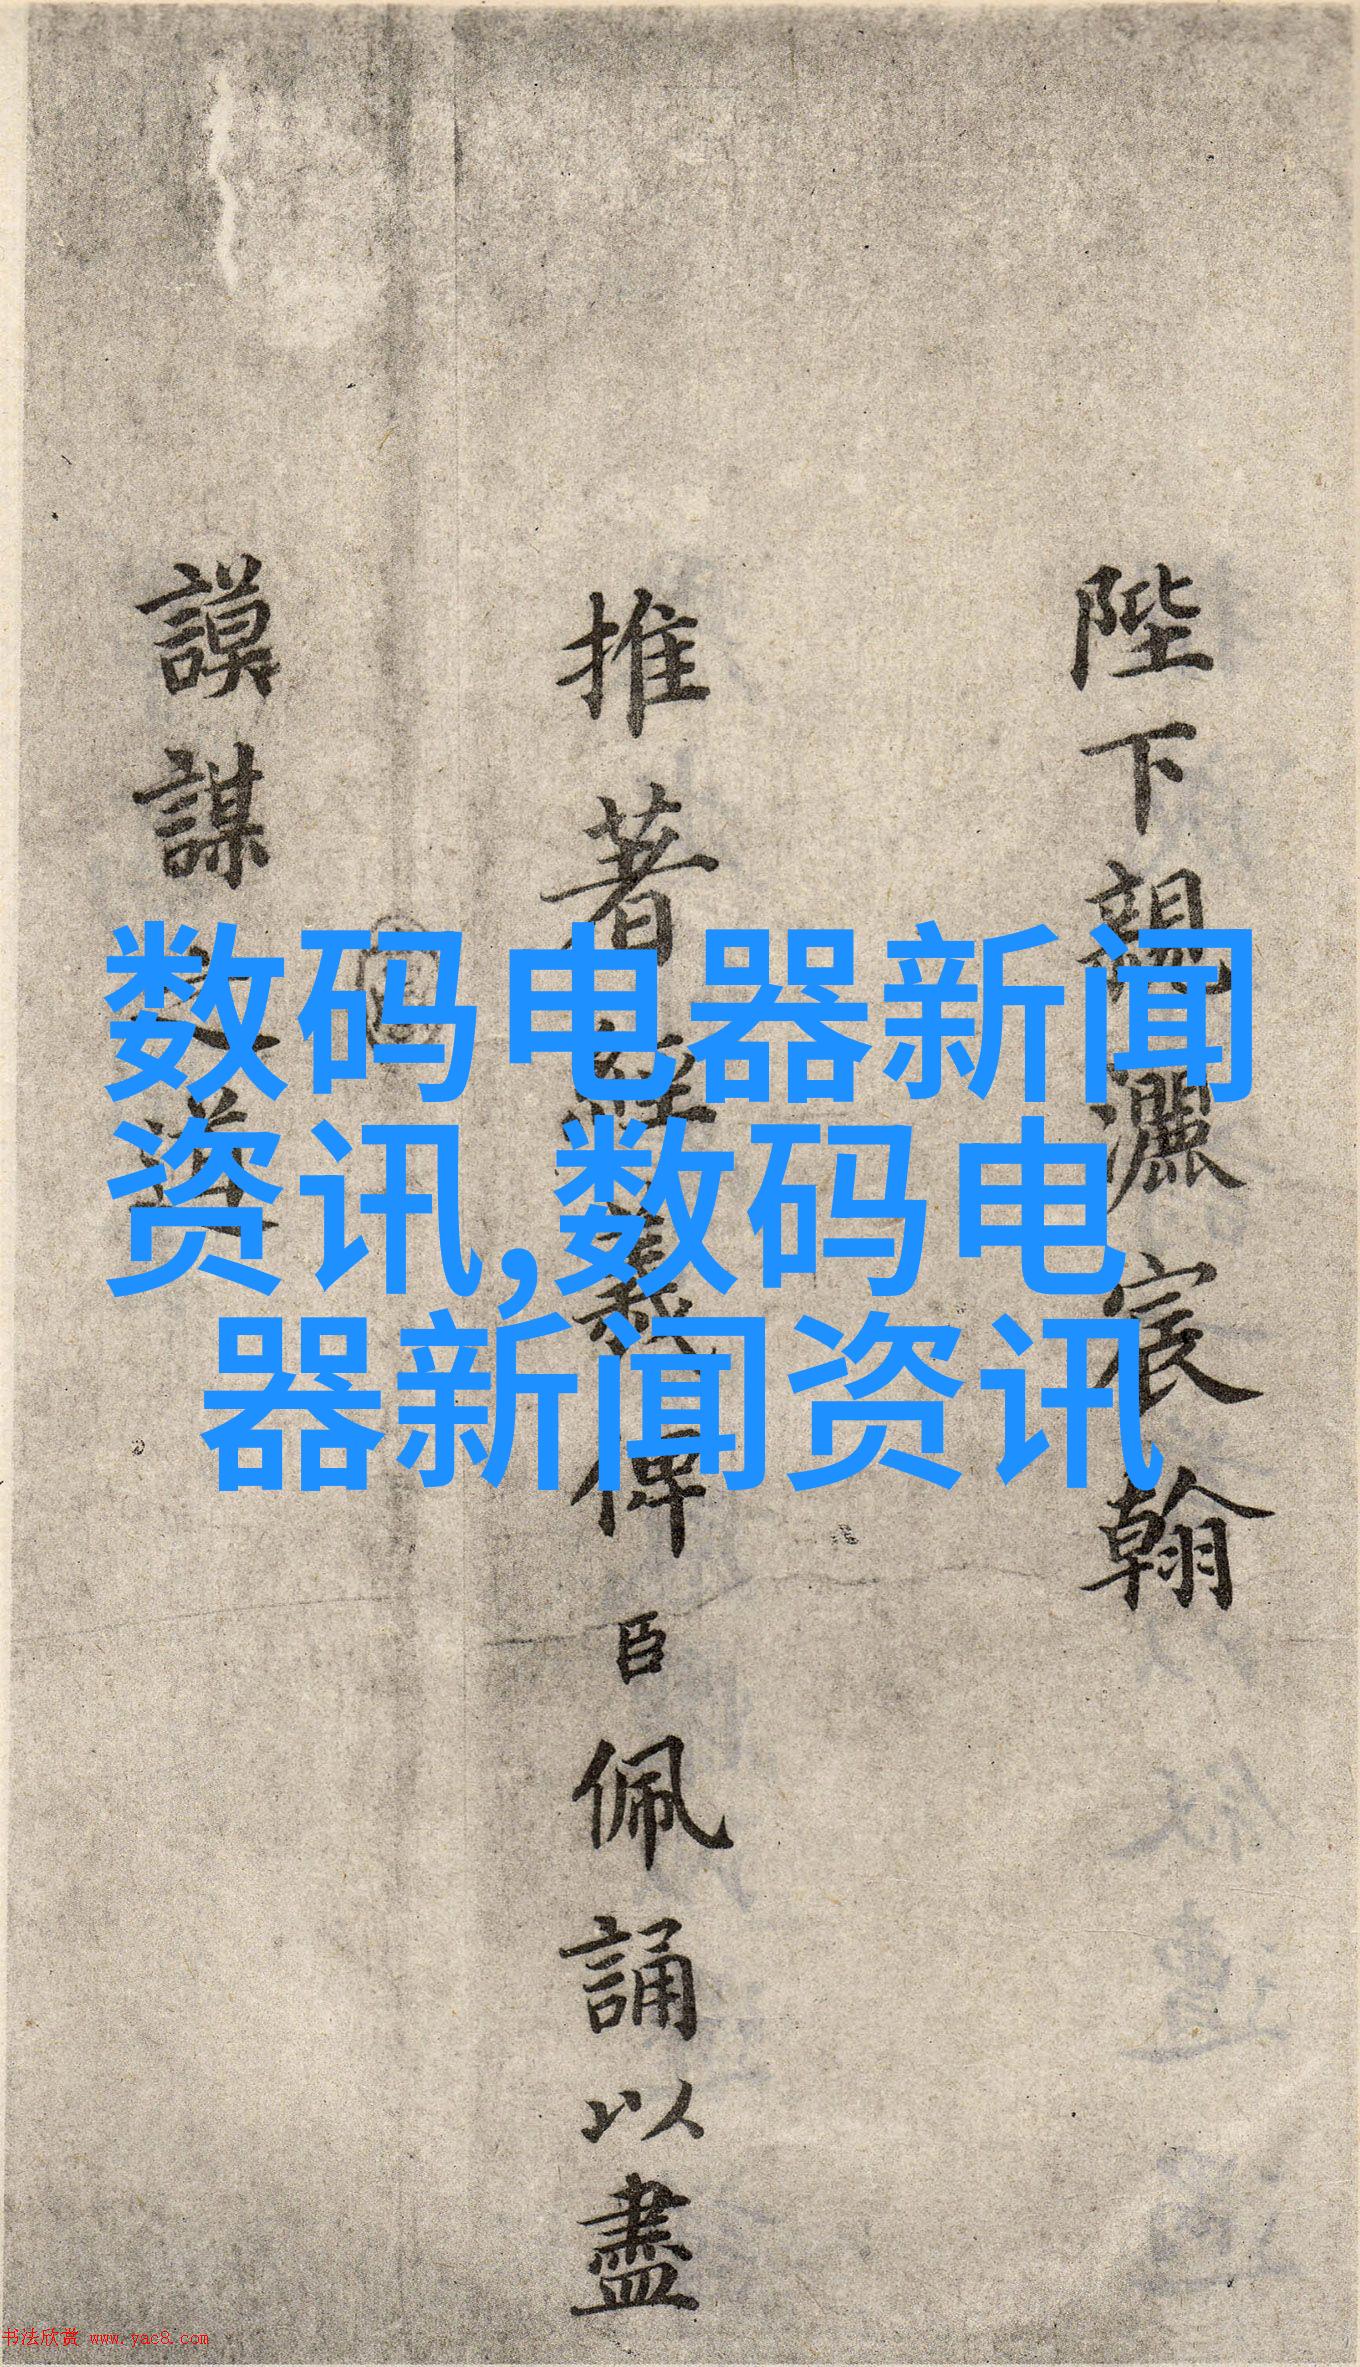 陛下親灑宸翰
推著經義俾臣佩誦以盡
謨謀之道
数码电器新闻
资讯,数码电
器新闻资讯
书法欣赏 www.yac8.com